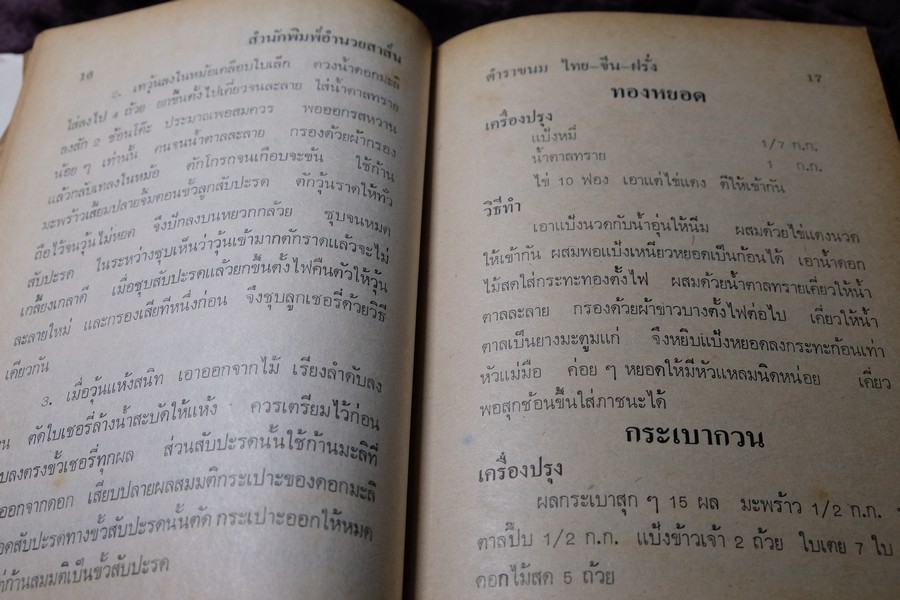 สำนักพิมพ์อำนวยสาส์น
16
2. เทวุ้นลงในหม้อเคลือบใบเล็ก ตวงน้ำดอกมะลิ
ใส่ลงไป 4 ถ้วย ยกขึ้นตั้งไฟเคี่ยวจนละลาย ใส่น้ำตาลทราย
ลงสัก 2 ช้อนโต๊ะ ประมาณพอสมควร พอออกรสหวาน
น้อย ๆ เท่านั้น คนจนน้ำตาลละลาย กรองด้วยผ้ากรอง
แล้วกลับเทลงในหม้อ ตักโกรกจนเกือบจะข้น ใช้ก้าน
มะพร้าวเสี้ยมปลายจิ้มตอนขั้วลูกสับปะรด ตักวุ้นราดให้ทั่ว
ถือไว้จนวุ้นไม่หยด จึงปักลงบนหยวกกล้วย ชุบจนหมด
สับปะรด ในระหว่างชุบเห็นว่าวุ้นเข้ามากตักราดแล้วจะไม่
เกลี้ยงเกลาดี เมื่อชุบสับปะรดแล้วยกขึ้นตั้งไฟคืนตัวให้วุ้น
ละลายใหม่ และกรองเสียทีหนึ่งก่อน จึงชุบลูกเชอรี่ด้วยวิธี
เดียวกัน
3. เมื่อวุ้นแห้งสนิท เอาออกจากไม้ เรียงลำดับลง
น ตัดใบเชอรี่ล้างน้ำสะบัดให้แห้ง ควรเตรียมไว้ก่อน
บลงตรงขั้วเชอรี่ทุกผล ส่วนสับปะรดนั้นใช้ก้านมะลิที่
ออกจากดอก เสียบปลายผลสมมติกระเปาะของดอกมะลิ
อดสับปะรดทางขั้วสับปะรดนั้นตัด กระเปาะออกให้หมด
ต่ก้านสมมติเป็นขั้วสับปะรด
ตำราขนม ไทย-จีน-ฝรั่ง
17
ทองหยอด
เครื่องปรุง
แป้งหมี่ 1/7 ก.ก.
น้ำตาลทราย 1 ก.ก.
ไข่ 10 ฟอง เอาแต่ไข่แดง ตีให้เข้ากัน
วิธีทำ
เอาแป้งนวดกับน้ำอุ่นให้นิ่ม ผสมด้วยไข่แดงนวด
ให้เข้ากัน ผสมพอแป้งเหนียวหยอดเป็นก้อนได้ เอาน้ำดอก
ไม้สดใส่กระทะทองตั้งไฟ ผสมด้วยน้ำตาลทรายเคี่ยวให้น้ำ
ตาลละลาย กรองด้วยผ้าขาวบางตั้งไฟต่อไป เคี่ยวให้น้ำ
ตาลเป็นยางมะตูมแก่ จึงหยิบแป้งหยอดลงกระทะก้อนเท่า
หัวแม่มือ ค่อย ๆ หยอดให้มีหัวแหลมนิดหน่อย เคี่ยว
พอสุกช้อนขึ้นใส่ภาชนะได้
กระเบากวน
เครื่องปรุง
ผลกระเบาสุก ๆ 15 ผล มะพร้าว 1/2 ก.ก.
ตาลปี๊บ 1/2 ก.ก. แป้งข้าวเจ้า 2 ถ้วย ใบเตย 7 ใบ
ดอกไม้สด 5 ถ้วย